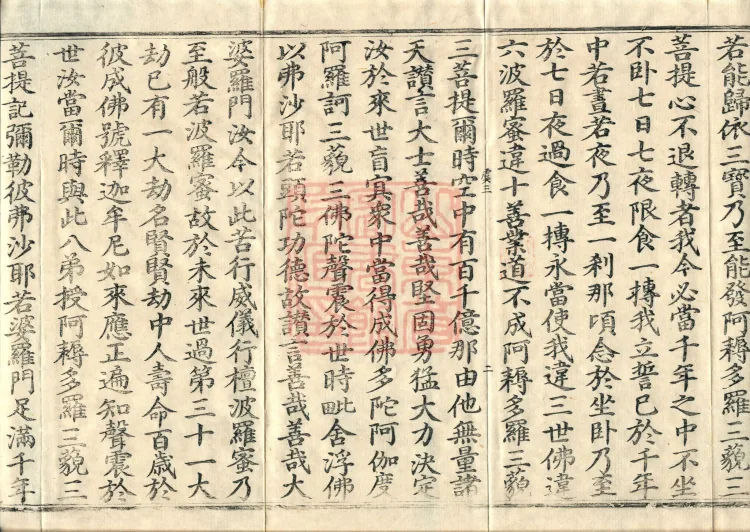 若能歸依三寶乃至能發阿耨多羅三藐三
菩提心不退轉者我今必當千年之中不坐
不卧七日七夜限食一摶我立誓已於千年
中若晝若夜乃至一刹那頃念於坐卧乃至
於七日夜過食一摶永當使我違三世佛違
六波羅蜜違十善業道不成阿耨多羅三藐
二
三菩提爾時空中有百千億那由他無量諸
天讚言大士善哉善哉堅固勇猛大力決定
汝於來世盲冥衆中當得成佛多陀阿伽度
阿羅訶三藐三佛陀聲震於世時毗舍浮佛
以弗沙耶若頭陀功德故讚言善哉善哉大
婆羅門汝今以此苦行威儀行檀波羅蜜乃
至般若波羅蜜故於未來世過第三十一大
劫已有一大劫名賢賢劫中人壽命百歲於
彼成佛號釋迦牟尼如來應正遍知聲震於
世汝當爾時與此八弟授阿耨多羅三藐三
菩提記彌勒彼弗沙耶若婆羅門足滿千年